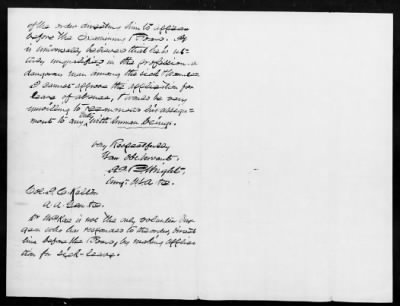 of the order directing him to appear
before the Examining Board. He
is universally believed that he is ut-
terly unqualified in the profession & a
dangerous man among the sick & wounded
I cannot approve the application for
leave of absence, & would be very
unwilling to recommend his assign-
ment to any duty with human beings.
Very Respectfully
Your Obt Servant.
Wright,
Surg. U.S.A.
Col. J. C. Kelton
A. A. Gen.
Dr McKee is not the only volunteer Sur-
geon who has responded to the order direct-
ing him before the Board, by making applica-
tion for sick-leave.